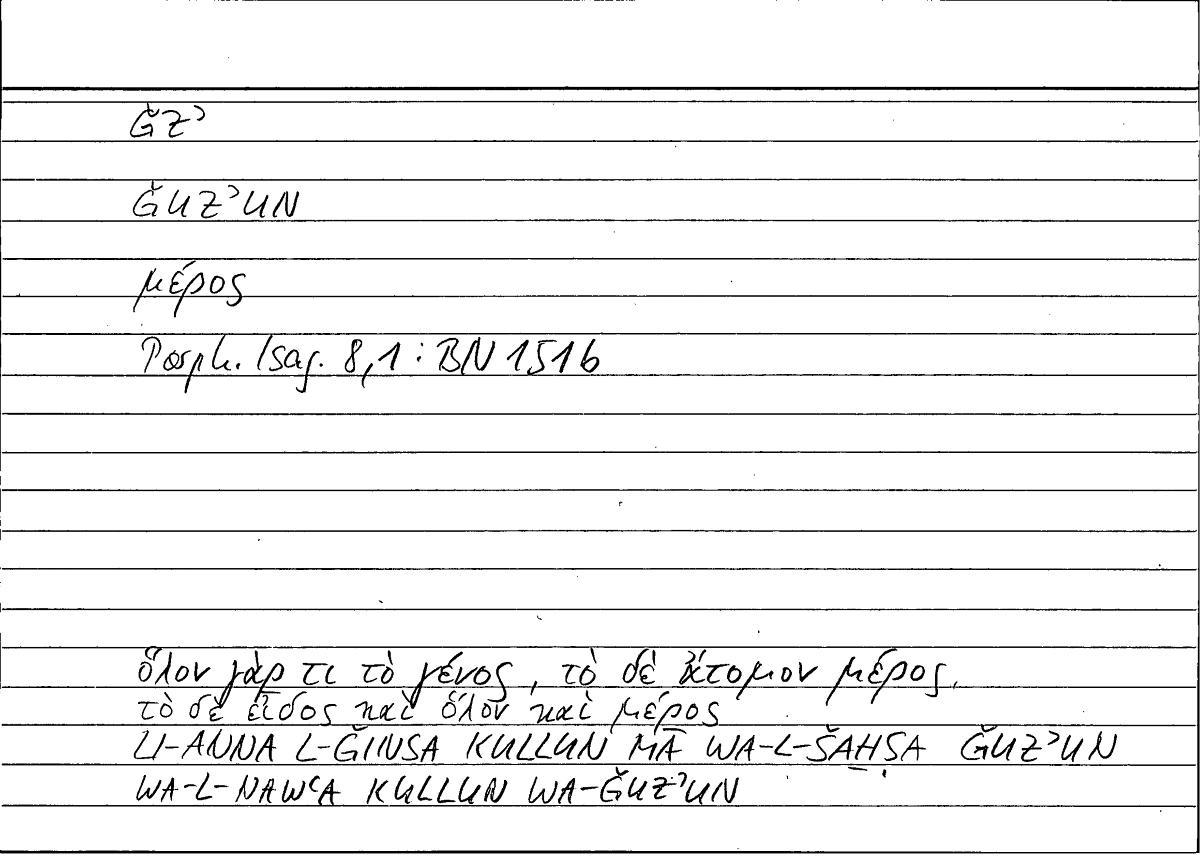 ǦZʾ
ǦUZʾUN
μέρος
Porph. Isag. 8,1 : BN 151b
ὅλον γάρ τι τὸ γένος, τὸ δὲ ἄτομον μέρος,
τὸ δὲ εἶδος καὶ ὅλον καὶ μέρος
LI-ANNA L-ǦINSA KULLUN MĀ WA-L-ŠAḪṢA ǦUZʾUN
WA-L-NAWʿA KULLUN WA-ǦUZʾUN